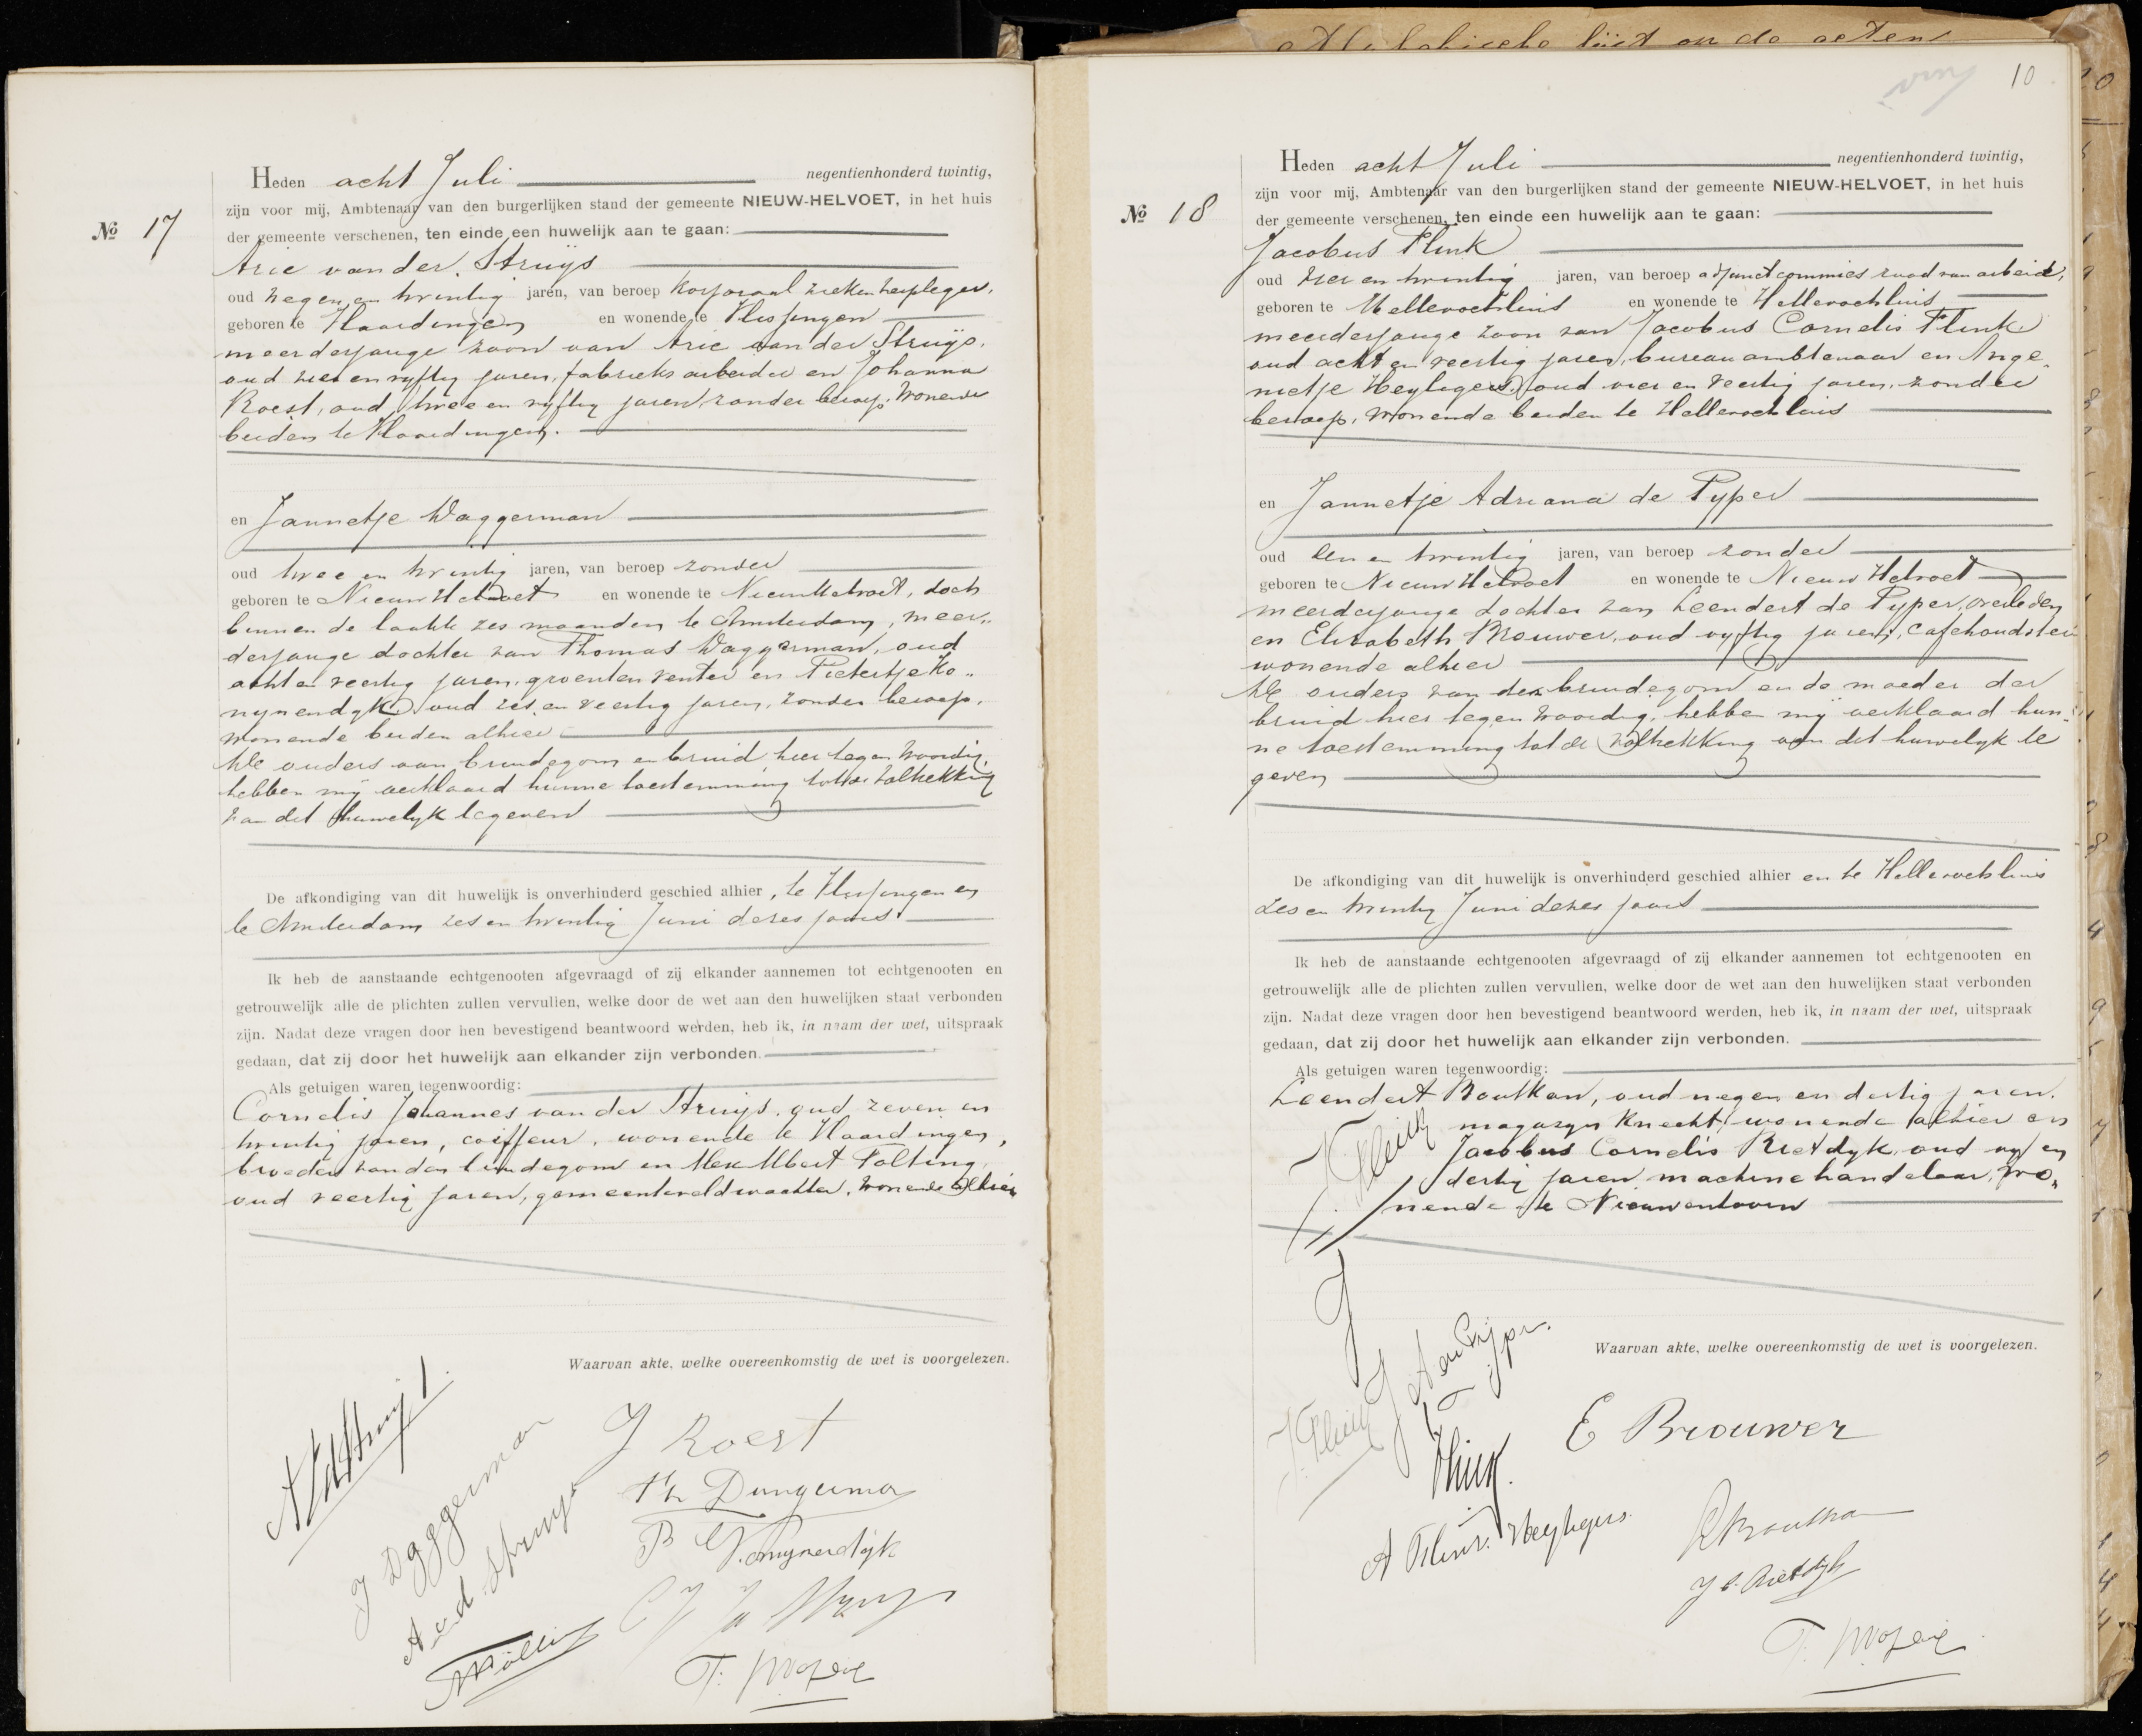 Alphabetische lijst op de acten
10
No 17
Heden acht Juli negentienhonderd twintig,
zijn voor mij, Ambtenaar van den burgerlijken stand der gemeente NIEUW-HELVOET, in het huis
der gemeente verschenen, ten einde een huwelijk aan te gaan:
Arie van der Struijs
oud negen en twintig jaren, van beroep korporaal ziekenverpleger,
geboren te Vlaardingen en wonende te Vlissingen
meerderjarige zoon van Arie van der Struijs,
oud vier en vyftig jaren, fabrieksarbeider en Johanna
Roest, oud twee en vyftig jaren, zonder beroep, wonende
beiden te Vlaardingen.
en Jannetje Daggerman
oud twee en twintig jaren, van beroep zonder
geboren te Nieuw Helvoet en wonende te Nieuw Helvoet, doch
binnen de laatste zes maanden te Amsterdam, meer„
derjarige dochter van Thomas Daggerman, oud
acht en veertig jaren, groentenventer en Pietertje Ko„
nynendyk oud zes en veertig jaren, zonder beroep,
wonende beiden alhier
De ouders van bruidegom en bruid hier tegenwoordig,
hebben mij verklaard hunne toestemming tot de voltrekking
van dit huwelyk te geven
De afkondiging van dit huwelijk is onverhinderd geschied alhier, te Vlissingen en
te Amsterdam zes en twintig Juni dezes jaars
Ik heb de aanstaande echtgenooten afgevraagd of zij elkander aannemen tot echtgenooten en
getrouwelijk alle de plichten zullen vervullen, welke door de wet aan den huwelijken staat verbonden
zijn. Nadat deze vragen door hen bevestigend beantwoord werden, heb ik, in naam der wet, uitspraak
gedaan, dat zij door het huwelijk aan elkander zijn verbonden.
Als getuigen waren tegenwoordig:
Cornelis Johannes van der Struijs, oud zeven en
twintig jaren, coiffeur, wonende te Vlaardingen,
broeder van den bruidegom en Alex Albert Folting
oud veertig jaren, gemeenteveldwachter, wonende alhier
Waarvan akte, welke overeenkomstig de wet is voorgelezen.
J Daggerman
J Roest
T. Mozer
No 18
Heden acht Juli negentienhonderd twintig,
zijn voor mij, Ambtenaar van den burgerlijken stand der gemeente NIEUW-HELVOET, in het huis
der gemeente verschenen, ten einde een huwelijk aan te gaan:
Jacobus Flink
oud vier en twintig jaren, van beroep adjunct commies raad van arbeid,
geboren te Hellevoetsluis en wonende te Hellevoetsluis
meerderjarige zoon van Jacobus Cornelis Flink
oud acht en veertig jaren, bureauambtenaar en Ange„
nietje Heyligers, oud vier en veertig jaren, zonder
beroep, wonende beiden te Hellevoetsluis
en Jannetje Adriana de Pyper
oud een en twintig jaren, van beroep zonder
geboren te Nieuw Helvoet en wonende te Nieuw Helvoet
meerderjarige dochter van Leendert de Pyper, overleden
en Elisabeth Brouwer, oud vyftig jaren, caféhoudster
wonende alhier
De ouders van den bruidegom en de moeder der
bruid hier tegenwoordig, hebben mij verklaard hun„
ne toestemming tot de voltrekking van dit huwelyk te
geven
De afkondiging van dit huwelijk is onverhinderd geschied alhier en te Hellevoetsluis
zes en twintig Juni dezes jaars
Ik heb de aanstaande echtgenooten afgevraagd of zij elkander aannemen tot echtgenooten en
getrouwelijk alle de plichten zullen vervullen, welke door de wet aan den huwelijken staat verbonden
zijn. Nadat deze vragen door hen bevestigend beantwoord werden, heb ik, in naam der wet, uitspraak
gedaan, dat zij door het huwelijk aan elkander zijn verbonden.
Als getuigen waren tegenwoordig:
Leendert Boutkan, oud negen en dertig jaren,
magazyn knecht, wonende alhier en
Jacobus Cornelis Rietdyk, oud vyf en
dertig jaren machinehandelaar, wo„
nende te Nieuwenhoorn
Waarvan akte, welke overeenkomstig de wet is voorgelezen.
J A de Pijper.
E Brouwer
Flink.
A Flink. Heyligers
L Boutkan
J C. Rietdijk
T. Mozer